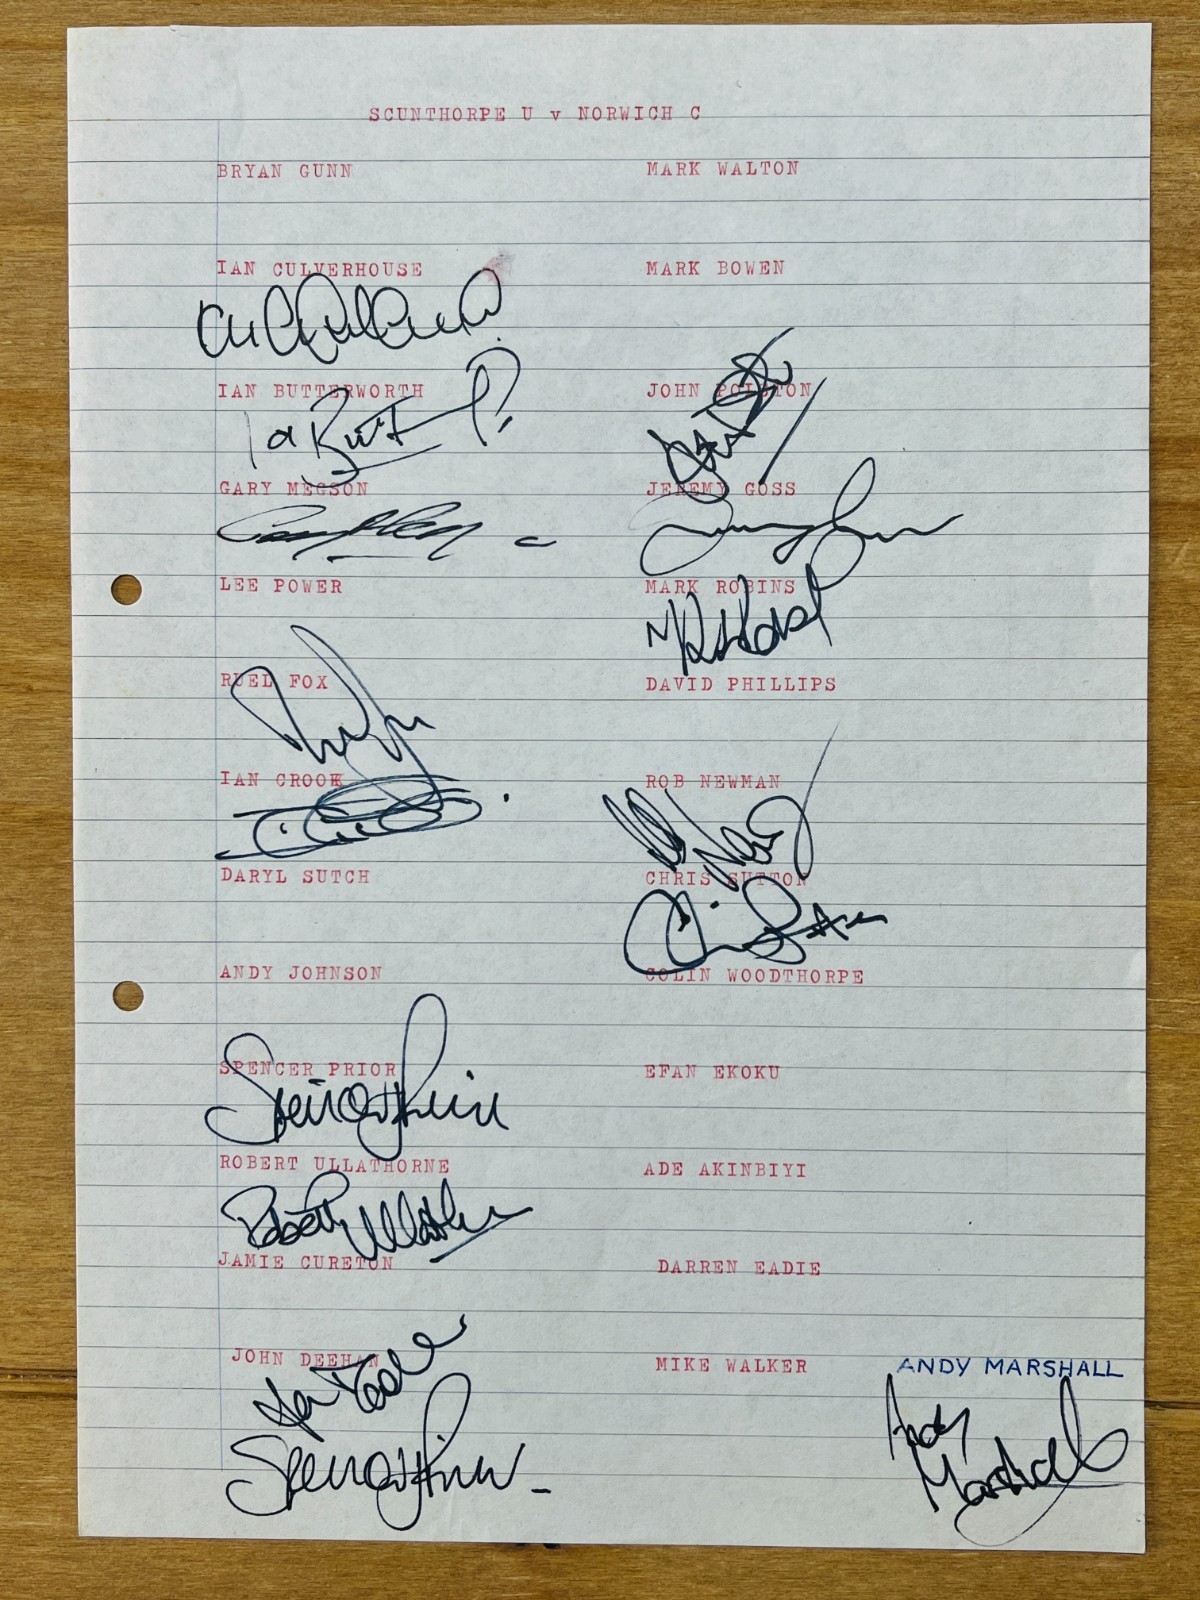 SCUNTHORPE U v NORWICH C
BRYAN GUNN MARK WALTON
IAN CULVERHOUSE MARK BOWEN
IAN BUTTERWORTH JOHN POLSTON
GARY MEGSON JEREMY GOSS
LEE POWER MARK ROBINS
RUEL FOX DAVID PHILLIPS
IAN CROOK ROB NEWMAN
DARYL SUTCH CHRIS SUTTON
ANDY JOHNSON COLIN WOODTHORPE
SPENCER PRIOR EFAN EKOKU
Spencer Prior
ROBERT ULLATHORNE ADE AKINBIYI
Robert Ullathorne
JAMIE CURETON DARREN EADIE
JOHN DEEHAN MIKE WALKER ANDY MARSHALL
Andy
Marshall
Spencer Prior